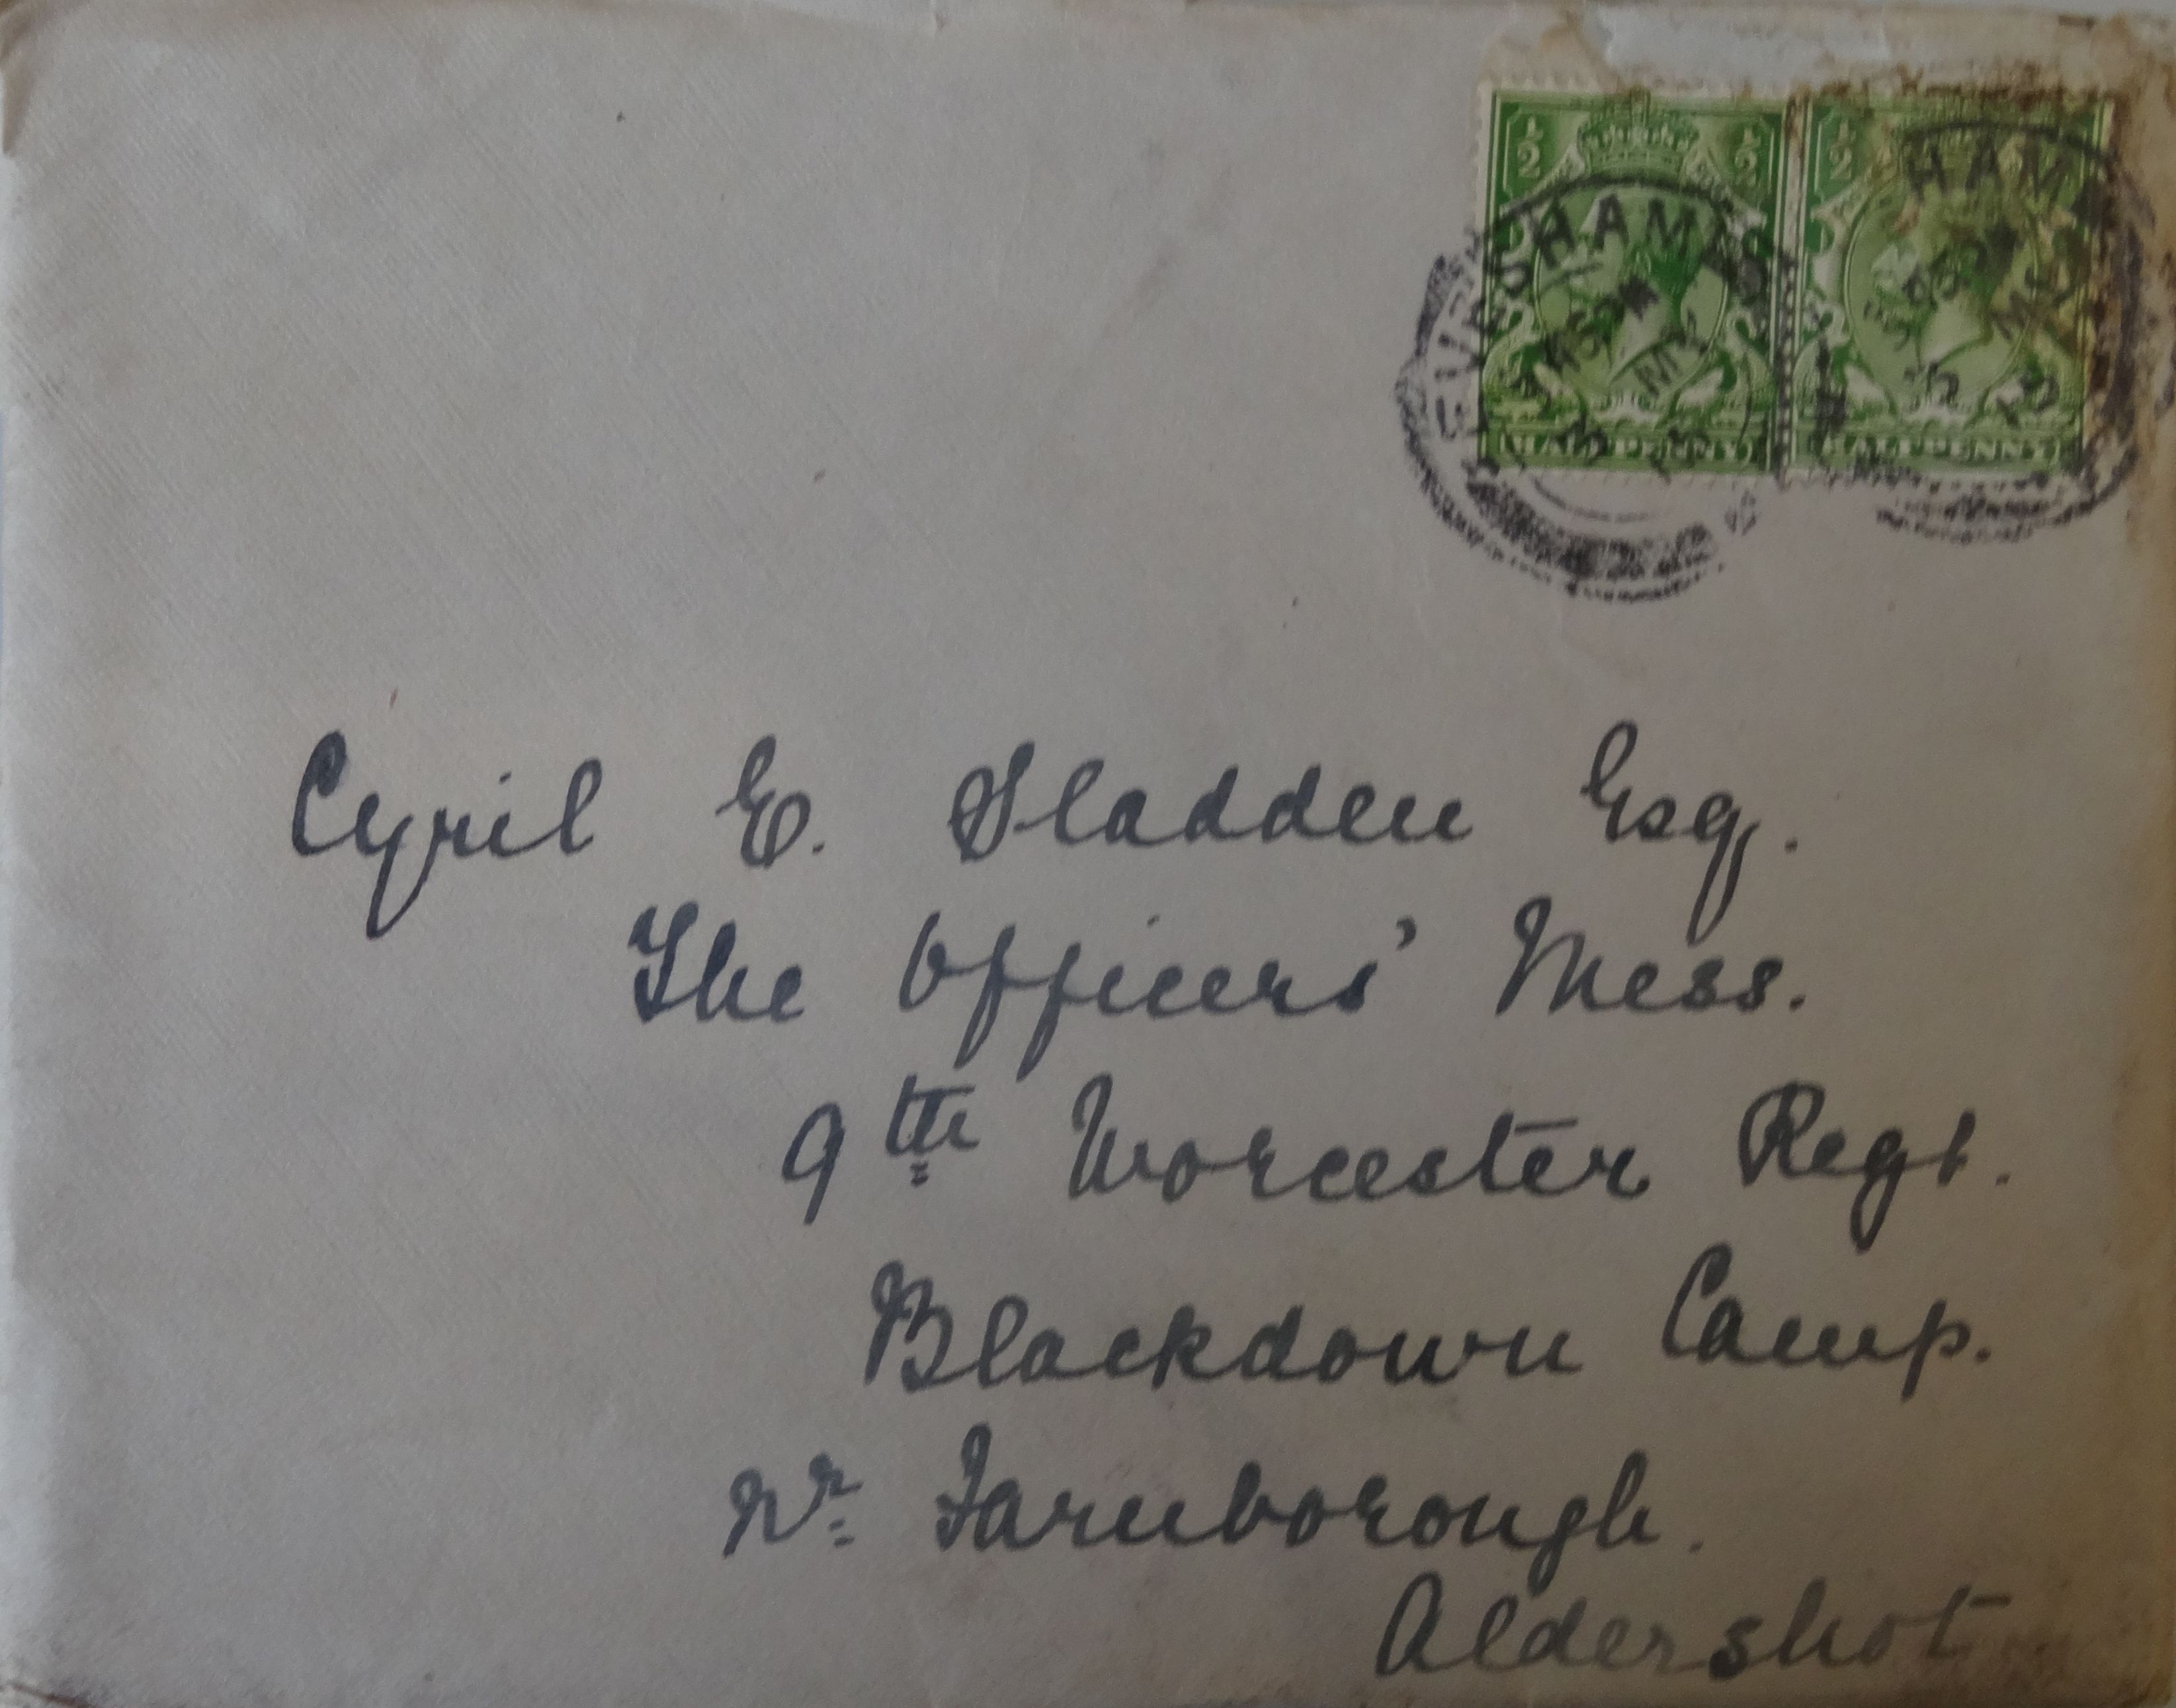 ½ ½ ½
EVESHAM
HAM
MY
HALFPENNY HALFPENNY
Cyril E. Sladden Esq.
The Officers' Mess.
9th Worcester Regt.
Blackdown Camp.
Nr. Farnborough.
Aldershot